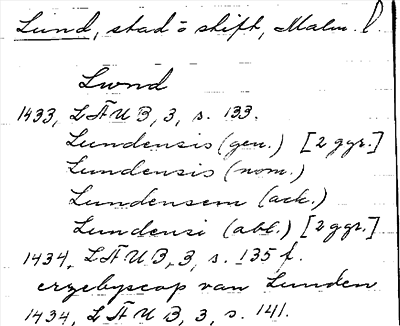 Lund, stad o stift, Malm. l.
Lwnd
1433, LÄUB, 3, s. 133.
Lundensis (gen.) [2 ggr.]
Lundensis (nom.)
Lundensem (ack.)
Lundensi (abl.) [2 ggr.]
1434, LÄUB, 3, s. 135 f.
erzebyscop van Lunden
1434, LÄUB, 3, s. 141.